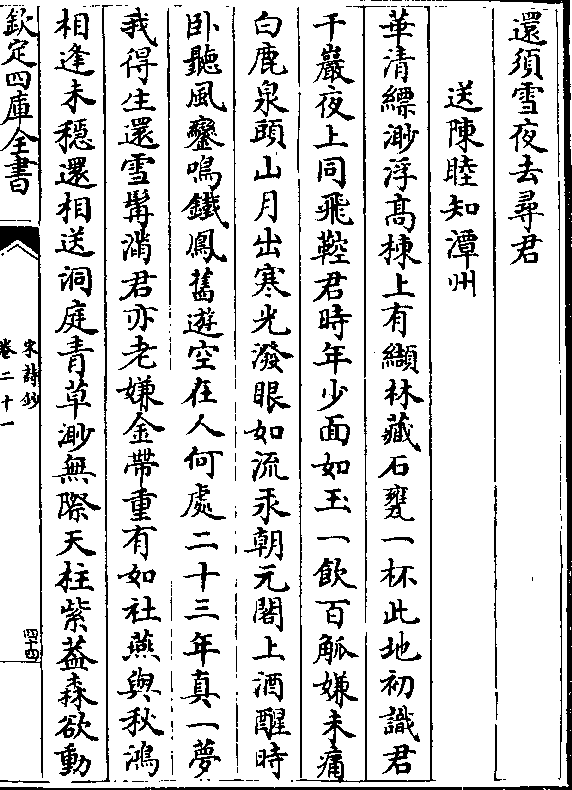 還須雪夜去尋君
送陳睦知潭州
華清縹渺浮高棟上有纈林藏石甕一杯此地初識君
千巖夜上同飛鞚君時年少面如玉一飲百觚嫌未痛
白鹿泉頭山月出寒光潑眼如流汞朝元閣上酒醒時
卧聽風鑾鳴鐵鳳舊遊空在人何處二十三年真一夢
我得生還雪髯滿君亦老嫌金帶重有如社燕與秋鴻
相逢未穩還相送洞庭青草渺無際天柱紫蓋森欲動
欽定四庫全書
宋詩鈔
卷二十一
四十四